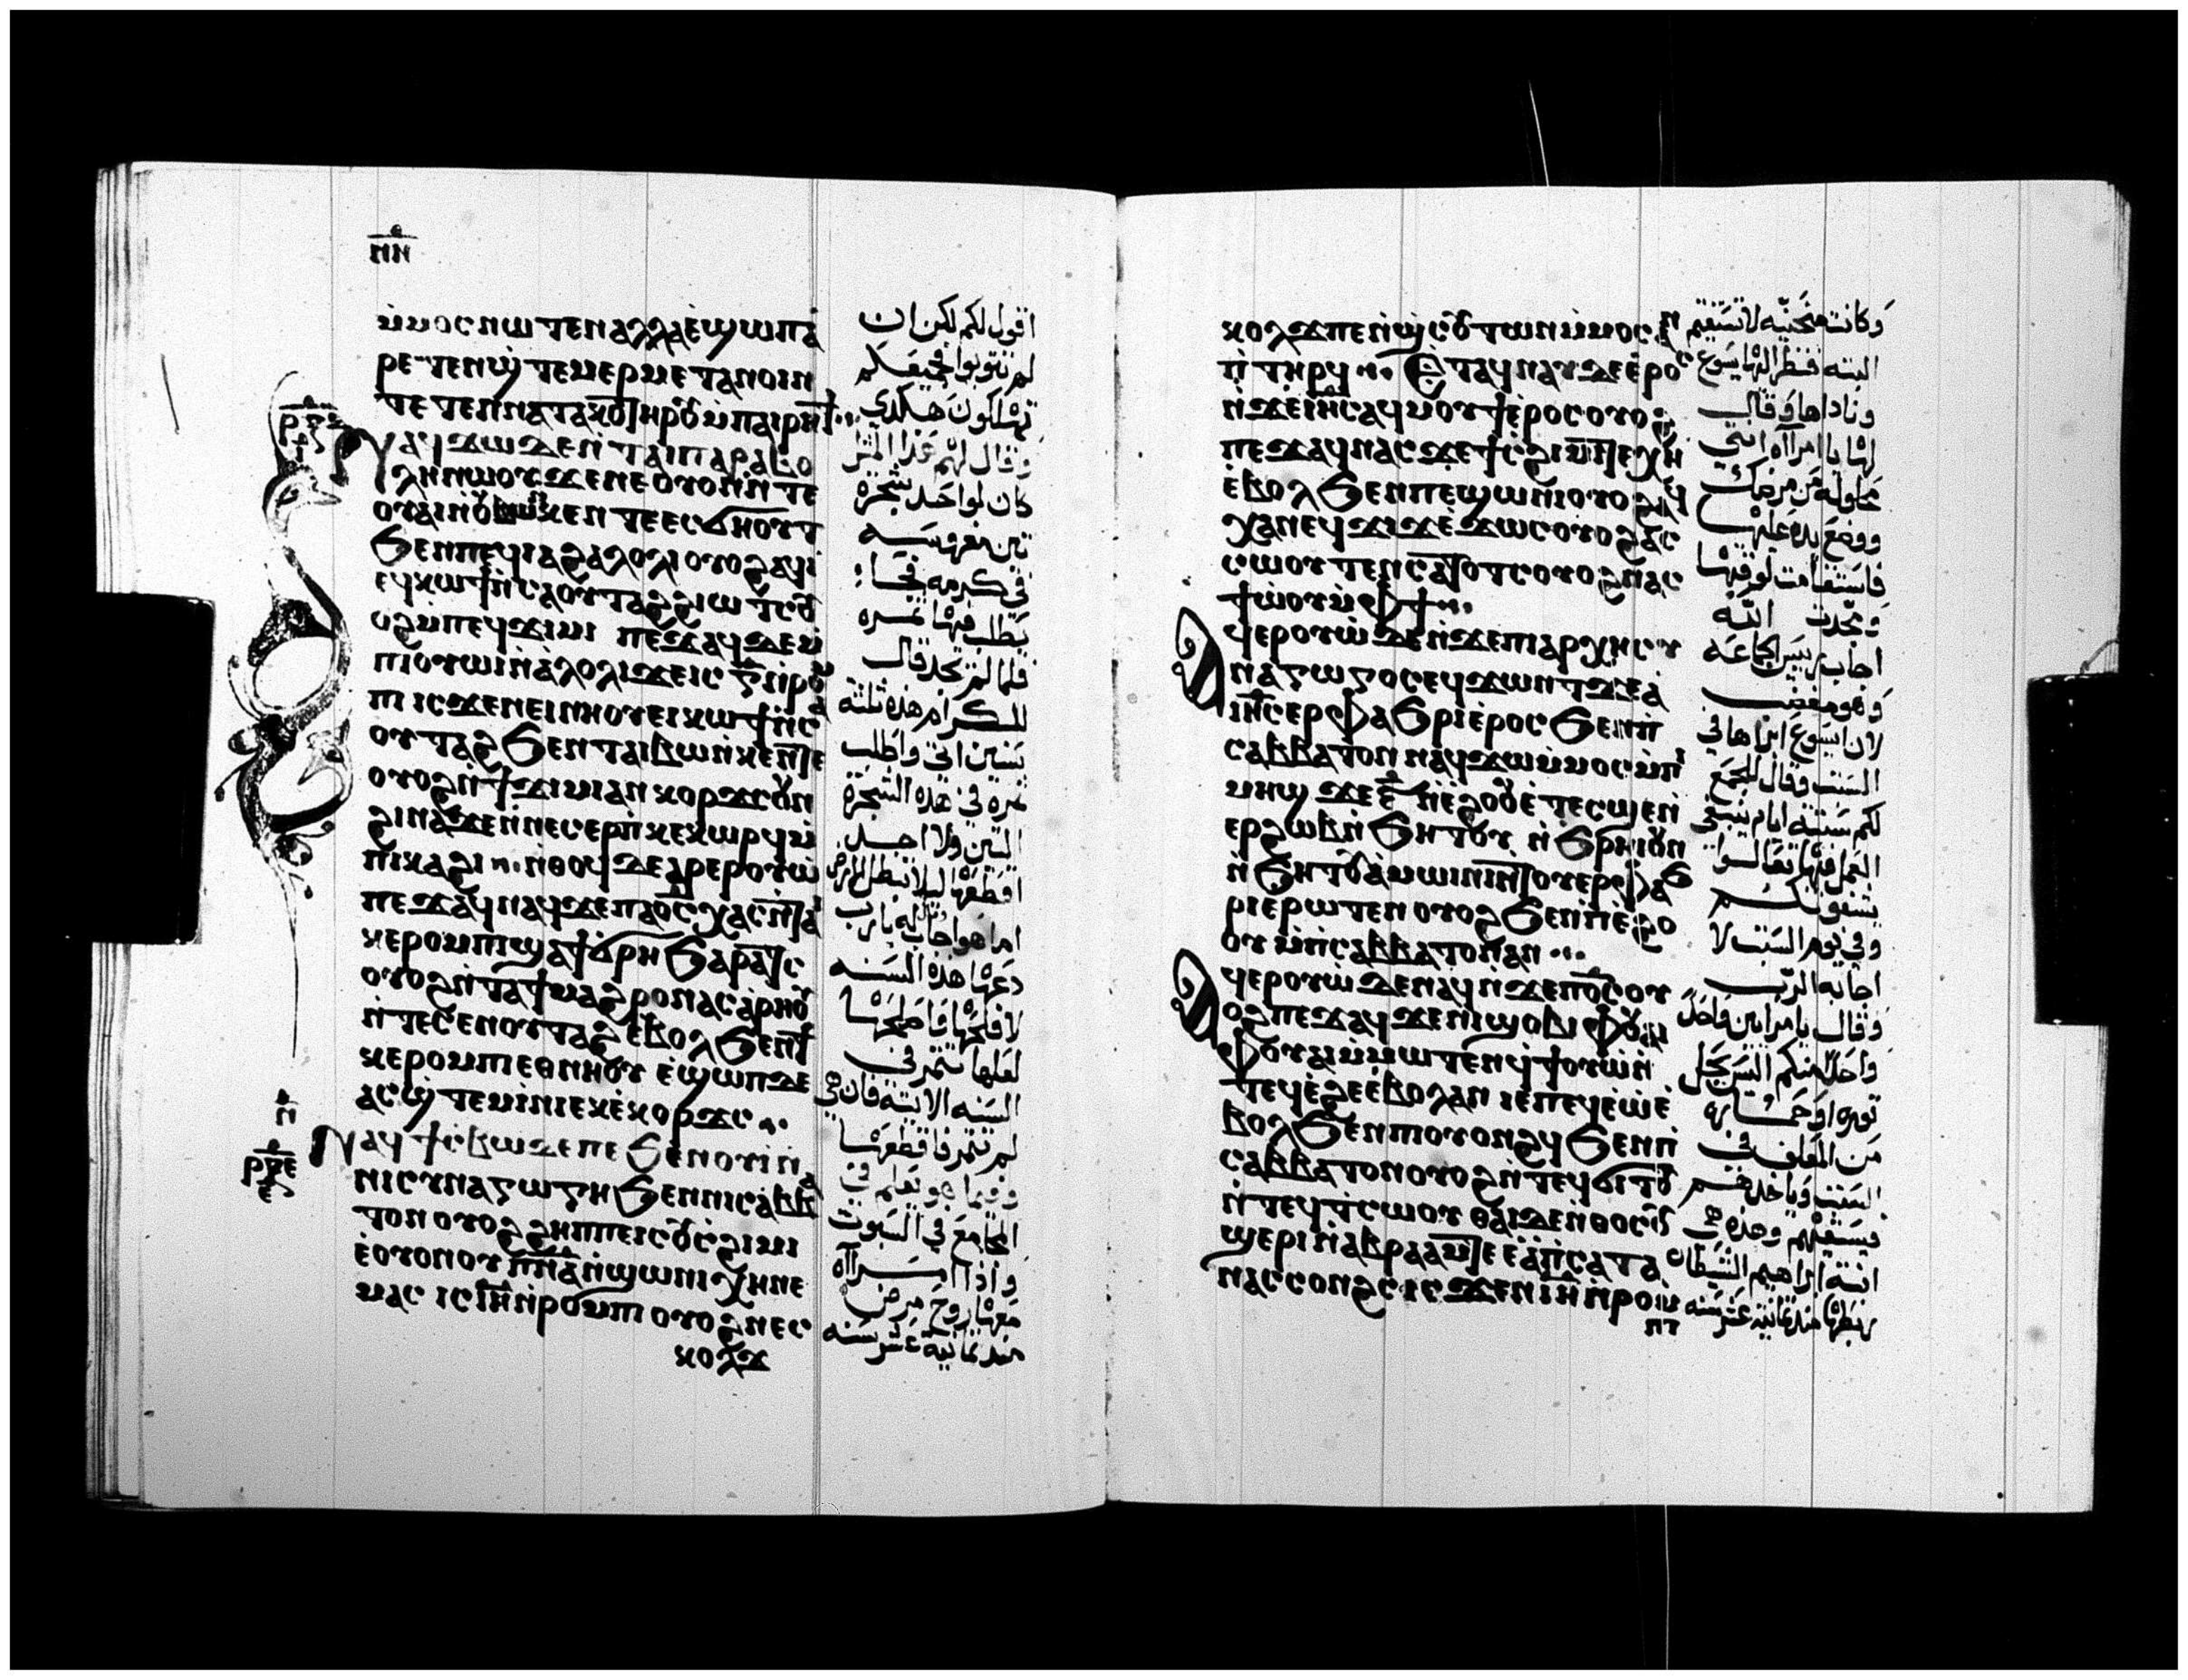 ⲙⲙⲟⲥ ⲛⲱⲧⲉⲛ ⲁⲗⲗⲁ ⲉϣⲱⲡ ⲁ
ⲣⲉⲧⲉⲛϣⲧⲉⲙⲉⲣⲙⲉⲧⲁⲛⲟⲓⲛ
ⲧⲉⲧⲉⲛⲛⲁⲧⲁⲕⲟ ⲧⲏⲣⲟⲩ ⲙⲡⲁⲓⲣⲏϯ
ⲛⲁϥϫⲱ ⲇⲉ ⲛⲧⲁⲓⲡⲁⲣⲁⲃⲟ
ⲗⲏ ⲛⲱⲟⲩ ϫⲉ ⲛⲉ ⲟⲩⲟⲛⲛⲧⲉ
ⲟⲩⲁⲓ ⲛⲟⲩⲃⲱ ⲛⲕⲉⲛⲧⲉ ⲉⲥϭⲏⲟⲩⲧ
ϧⲉⲛ ⲡⲉϥⲓⲁϩⲁⲗⲟⲗⲓ ⲟⲩⲟϩ ⲁϥⲓ
ⲉϥⲕⲱϯ ⲛⲥⲁ ⲟⲩⲧⲁϩ ϩⲓⲱⲧⲥ ⲟⲩ
ⲟϩ ⲙⲡⲉϥϫⲓⲙⲓ ⲡⲉϫⲁϥ ⲇⲉ ⲙ
ⲡⲓⲟⲩⲱⲓ ⲛⲁⲗⲟⲗⲓ ϫⲉ ⲓⲥ ⲅ ⲛⲣⲟⲙ
ⲡⲓ ⲓⲥϫⲉⲛ ⲉⲓⲛⲏⲟⲩ ⲉⲓⲕⲱϯ ⲛⲥⲁ
ⲟⲩⲧⲁϩ ϧⲉⲛ ⲧⲁⲓⲃⲱ ⲛⲕⲉⲛⲧⲉ
ⲟⲩⲟϩ ⲛϯϫⲓⲙⲓ ⲁⲛ ⲕⲟⲣϫⲥ ⲟⲩⲛ
ϩⲓⲛⲁ ϫⲉ ⲛⲛⲉⲥⲉⲣⲡⲕⲉⲕⲱⲣϥ ⲙ
ⲡⲓⲕⲁϩⲓ ⲛⲑⲟϥ ⲇⲉ ⲁϥⲉⲣⲟⲩⲱ
ⲡⲉϫⲁϥ ⲛⲁϥ ϫⲉ ⲡⲁⲟⲥ ⲭⲁⲥ ⲛⲧⲁⲓ
ⲕⲉⲣⲟⲙⲡⲓ ϣⲁϯϭⲣⲏ ϧⲁⲣⲁⲧⲥ
ⲟⲩⲟϩ ⲛⲧⲁϯⲙⲁϩⲣⲟ ⲛⲁⲥ ⲁⲣⲏⲟⲩ
ⲛⲧⲉⲥⲉⲛ ⲟⲩⲧⲁϩ ⲉⲃⲟⲗ ϧⲉⲛ ϯ
ⲕⲉⲣⲟⲙⲡⲓ ⲉⲑⲛⲏⲟⲩ ⲉϣⲱⲡ ⲇⲉ
ⲁⲥϣⲧⲉⲙⲓⲛⲓ ⲉⲕⲉⲕⲟⲣϫⲥ
ⲛⲁϥϯⲥⲃⲱ ⲇⲉ ⲡⲉ ϧⲉⲛ ⲟⲩⲓ ⲛ
ⲛⲓⲥⲩⲛⲁⲅⲱⲅⲏ ϧⲉⲛ ⲛⲓⲥⲁⲃⲃⲁ
ⲧⲟⲛ ⲟⲩⲟϩ ϩⲏⲡⲡⲉ ⲓⲥ ⲟⲩⲥϩⲓⲙⲓ
ⲉⲟⲩⲟⲛ ⲟⲩⲡⲛⲁ ⲛϣⲱⲛⲓ ⲭⲏ ⲛⲉ
ⲙⲁⲥ ⲓⲥ ⲓⲏ ⲛⲣⲟⲙⲡⲓ ⲟⲩⲟϩ ⲛⲉⲥ
ⲕⲟⲗϫ
اقول لكم لكن ان
لم تتوبوا فجميعكم
تهلكون هكذي
وقال لهم هذا المثل
كان لواحد شجرة
تين مغروسه
في كرمه فجا
يطلب فيها ثمره
فلما لم يجد قال
للكرام هذه ثلثة
سنين اتي واطلب
ثمره في هذه الشجرة
التين ولا اجد
اقطعها ليلا تبطل الارض
اما هو اجاب له يارب
دعها هذه السنه
لافلحها واصلحها
لعلها تثمر في
السنه الاتيه فان هي
لم تثمر فاقطعها
وفيما هو يعلم في
المجامع في السبوت
واذا امراة
معها روح مرض
منذ ثمانية عشر سنه
ⲕⲟⲗϫ ⲡⲉ ⲛϣⲥⲟⲩⲧⲱⲛ ⲙⲙⲟⲥ
ⲡⲧⲏⲣϥ ⲉⲧⲁϥⲛⲁⲩ ⲇⲉ ⲉⲣⲟⲥ
ⲛϫⲉ ⲓⲏⲥ ⲁϥⲙⲟⲩϯ ⲉⲣⲟⲥ ⲟⲩⲟϩ
ⲡⲉϫⲁϥ ⲛⲁⲥ ϫⲉ ϯⲥϩⲓⲙⲓ ⲧⲉⲭⲏ
ⲉⲃⲟⲗ ϧⲉⲛ ⲡⲉϣⲱⲛⲓ ⲟⲩⲟϩ ⲁϥ
ⲭⲁ ⲛⲉϥϫⲓϫ ⲉϫⲱⲥ ⲟⲩⲟϩ ⲁⲥ
ⲥⲱⲟⲩⲧⲉⲛ ⲥⲁⲧⲟⲧⲥ ⲟⲩⲟϩ ⲛⲁⲥ
ϯⲱⲟⲩ ⲙⲫϯ
ⲁϥⲉⲣⲟⲩⲱ ⲇⲉ ⲛϫⲉ ⲡⲓⲁⲣⲭⲏⲥⲩ
ⲛⲁⲅⲱⲅⲟⲥ ⲉϥϫⲱⲛⲧ ϫⲉ ⲁ
ⲓⲏⲥ ⲉⲣⲫⲁϧⲣⲓ ⲉⲣⲟⲥ ϧⲉⲛ ⲡ
ⲥⲁⲃⲃⲁⲧⲟⲛ ⲛⲁϥϫⲱ ⲙⲙⲟⲥ ⲙⲡⲓ
ⲙⲏϣ ϫⲉ ⲋ ⲛⲉϩⲟⲟⲩ ⲉⲧⲉⲥϣⲉ ⲛ
ⲉⲣϩⲱⲃ ⲛϧⲏⲧⲟⲩ ⲛϧⲣⲏⲓ ⲟⲩⲛ
ⲛϧⲏⲧⲟⲩ ⲁⲙⲱⲓⲛⲓ ⲛⲧⲟⲩⲉⲣⲫⲁϧ
ⲣⲓ ⲉⲣⲱⲧⲉⲛ ⲟⲩⲟϩ ϧⲉⲛ ⲡⲓⲉϩⲟ
ⲟⲩ ⲙⲡⲥⲁⲃⲃⲁⲧⲟⲛ ⲁⲛ
ⲁϥⲉⲣⲟⲩⲱ ⲇⲉ ⲛⲁϥ ⲛϫⲉ ⲡⲟⲥ ⲟⲩ
ⲟϩ ⲡⲉϫⲁϥ ϫⲉ ⲛⲓϣⲟⲃⲓ ⲫⲟⲩⲁⲓ
ⲫⲟⲩⲁⲓ ⲙⲙⲱⲧⲉⲛ ϥϯⲟⲩⲱ ⲛ
ⲧⲉϥⲉϩⲉ ⲉⲃⲟⲗ ⲁⲛ ⲓⲉ ⲡⲉϥⲉⲱ ⲉ
ⲃⲟⲗ ϧⲉⲛ ⲡⲓⲟⲩⲟⲛϩϥ ϧⲉⲛ ⲡ
ⲥⲁⲃⲃⲁⲧⲟⲛ ⲟⲩⲟϩ ⲛⲧⲉϥϭⲓⲧⲟⲩ
ⲛⲧⲉϥⲧⲥⲱⲟⲩ ⲑⲁⲓ ⲇⲉ ⲛⲑⲟⲥ ⲟⲩ
ϣⲉⲣⲓ ⲛⲁⲃⲣⲁⲁⲙ ⲧⲉ ⲉⲁ ⲡⲥⲁⲧⲁ
ⲛⲁⲥ ⲥⲟⲛϩⲥ ⲓⲥϫⲉⲛ ⲓⲏ ⲛⲣⲟⲙ
وكانت منحنيه لا تستقيم
البته فنظر اليها يسوع
وناداها وقال
لها يا امراة انتي
محلوله من مرضك
ووضع يده عليها
فاستقامت لوقتها
ومجدت الله
اجاب رييس الجماعه
وهو مغضب
لان ايسوع ابراها في
السبت وقال للجمع
لكم ستة ايام ينبغي
العمل فيها تعالوا
يشفوكم
وفي يوم السبت لا
اجابه الرب
وقال يا مرايين واحد
واحد منكم اليس يحل
ثوره او حماره
من المعلف في
السبت وياخذهم
فيسقيهم وهذه هي
ابنة ابراهيم الشيطان
ربطها منذ ثمانية عشر سنه